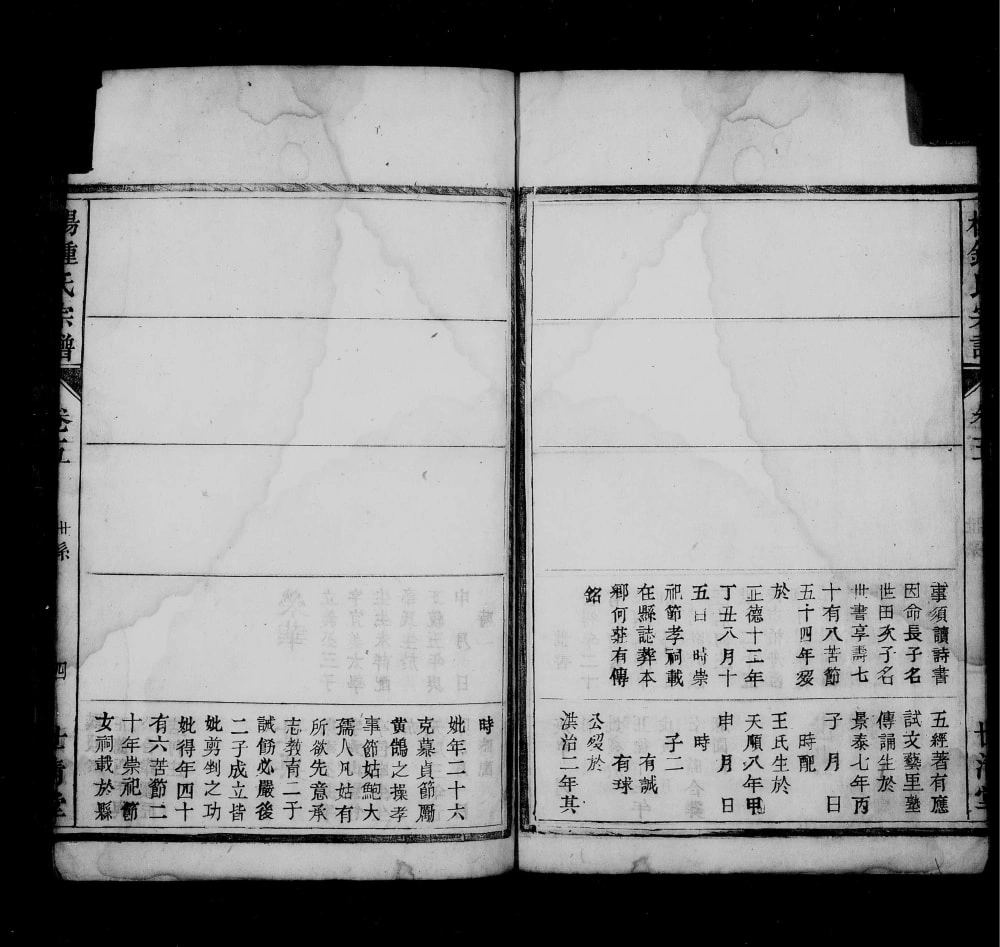 事須讀詩書
因命長子名
世田次子名
世書享壽七
十有八苦節
五十四年娶
於 時配
正德十二年
丁丑八月十
五日 時崇
祀節孝祠載
在縣誌葬本
鄉何莊有傳
銘 子二
五經著有應
試文藝里塾
傳誦生於
景泰七年丙
子 月 日
時配
王氏生於
天順八年甲
申 月 日
時
子二
有誠
有球
公娶於
洪治二年其
時
妣年二十六
克慕貞節勵
黃鵠之操孝
事節姑鮑大
孺人凡姑有
所欲先意承
志教育二子
誡飭必嚴後
二子成立皆
妣剪剉之功
妣得年四十
有六苦節二
十年崇祀節
女祠載於縣
楊鍾氏宗譜
卷五
世系
四
世清堂